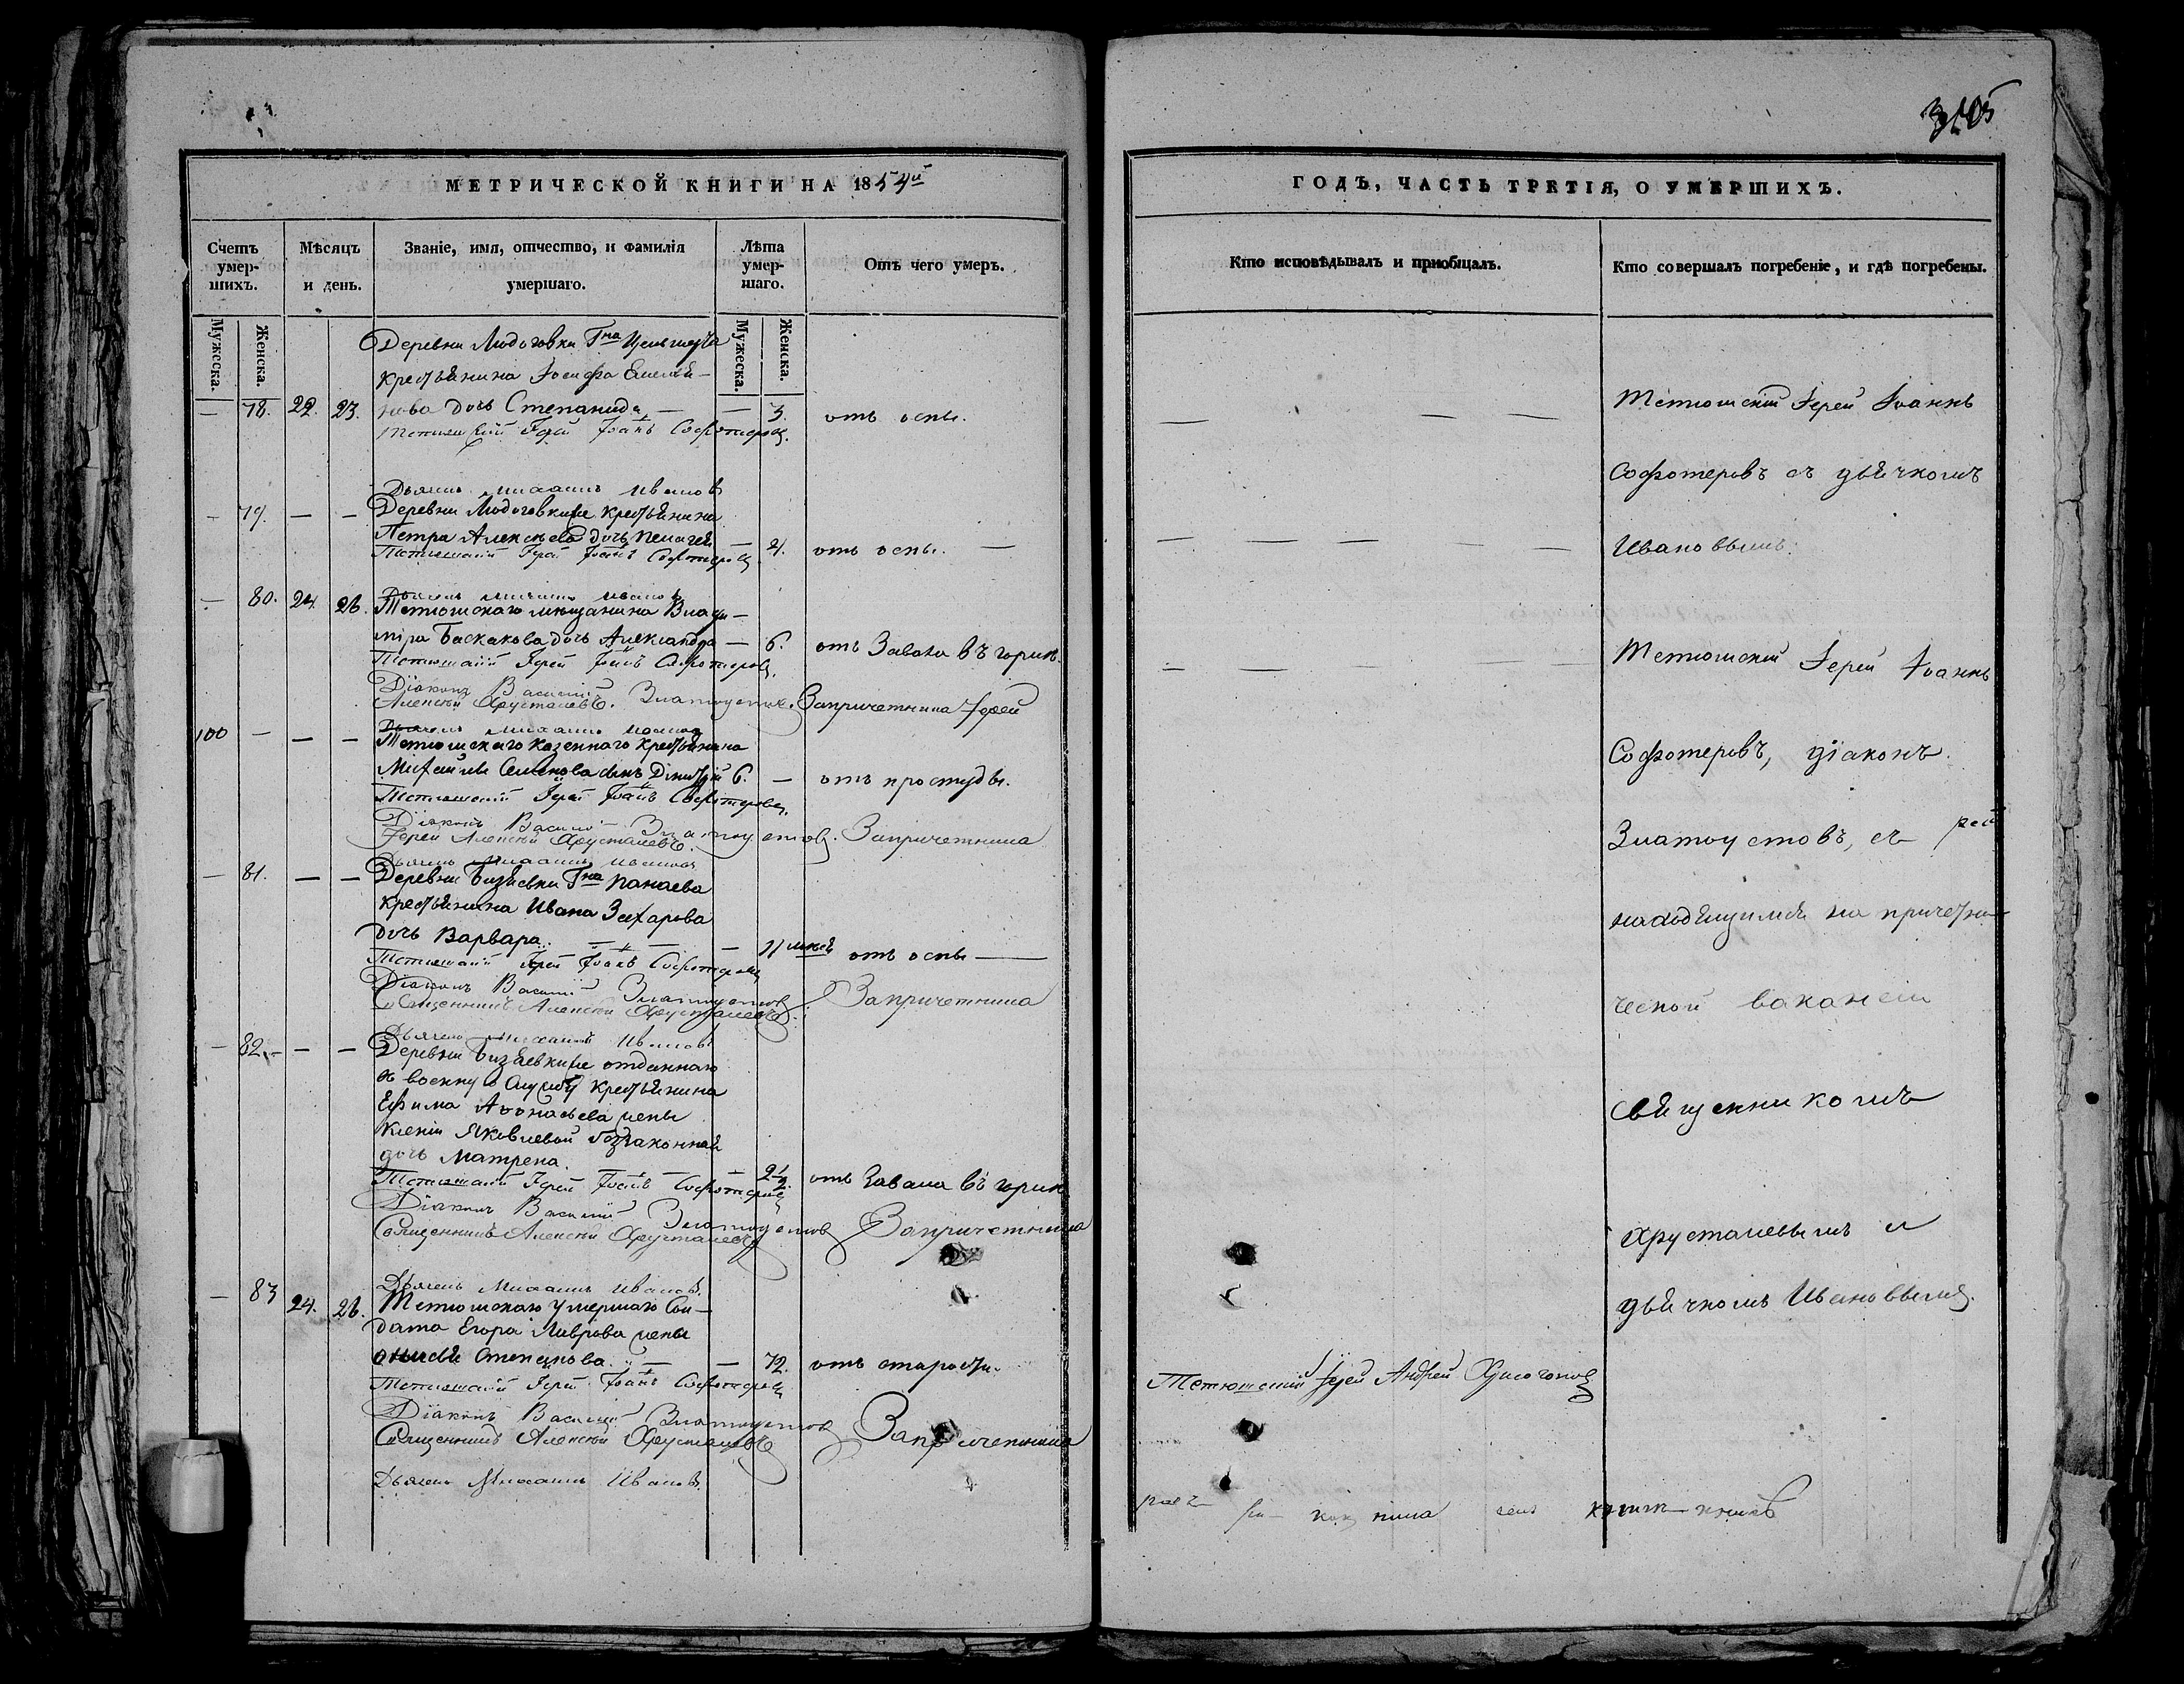 МЕТРИЧЕСКОЙ КНИГИ НА 1854й
Счетъ умер-шихъ.
Мѣсяцъ и день.
Званіе, имя, отчество, и фамилія умершаго.
Лѣта умер-шаго.
Отъ чего умеръ.
Мужеска. Женска.
Мужеска. Женска.
Деревни Людоговки Гна
крестьянина Іосифа
— 78. 22. 23. нова дочь Степанида — — 3. отъ оспы.
Тетюшскій Іерей Іоаннъ Софотеровъ.
Дьячекъ Михаилъ Ивановъ
— 79. — — Деревни Людоговки же крестьянина
Петра Алексѣева дочь Пелагея — 4. отъ оспы. —
Тетюшскій Іерей Іоаннъ Софотеровъ
Дьячекъ Михаилъ Ивановъ
— 80. 24. 26. Тетюшскаго мѣщанина Влади-
міра Баскакова дочь Александра — 6. отъ Завала въ горлѣ.
Тетюшскій Іерей Іоаннъ Софотеровъ.
Діаконъ Василій Златоустов. Запричетника Іерей
Алексѣй Хрусталевъ.
Дьячекъ Михаилъ Ивановъ
100 — — — Тетюшскаго казеннаго крестьянина
Михайлы Семенова сынъ Димитрій 6. — отъ простуды.
Тетюшскій Іерей Іоаннъ Софотеровъ.
Діаконъ Василій Златоустовъ. Запричетника
Іерей Алексѣй Хрусталевъ.
Дьячекъ Михаилъ Ивановъ
— 81. — — Деревни Бизяевки Гна Панаева
крестьянина Ивана Захарова
дочь Варвара. — — — 11 отъ оспы —
Тетюшскій Іерей Іоаннъ Софотеровъ
Діаконъ Василій Златоустовъ Запричетника
Священникъ Алексѣй Хрусталевъ
Дьячекъ Михаилъ Ивановъ
— 82. — — Деревни Бизяевки же отданнаго
въ военную службу крестьянина
Ефима Афонасьева жены
Ксеніи Яковлевой незаконная
дочь Матрена.
— — 2½ отъ Завала въ горлѣ
Тетюшскій Іерей Іоаннъ Софотеровъ
Діаконъ Василій Златоустовъ Запричетника
Священникъ Алексѣй Хрусталевъ
Дьячекъ Михаилъ Ивановъ.
— 83 24. 26. Тетюшскаго умершаго Сол-
дата Егора Лаврова жена
Анисья Степанова. — — 72. отъ старости.
Тетюшскій Іерей Іоаннъ Софотеровъ
Діаконъ Василій Златоустовъ Запричетника
Священникъ Алексѣй Хрусталевъ
Дьячекъ Михаилъ Ивановъ.
ГОДЪ, ЧАСТЬ ТРЕТІЯ, О УМЕРШИХЪ.
Кто исповѣдывалъ и пріобщалъ.
Кто совершалъ погребеніе, и гдѣ погребены.
Тетюшскій Іерей Іоаннъ
Софотеровъ съ дьячкомъ
Ивановымъ.
Тетюшскій Іерей Іоаннъ
Софотеровъ, діаконъ
Златоустовъ, съ
находящимся на причетни-
ческой вакансіи
священникомъ
Хрусталевымъ и
дьячкомъ Ивановымъ.
Тетюшскій Іерей Андрей Хрисогоновъ